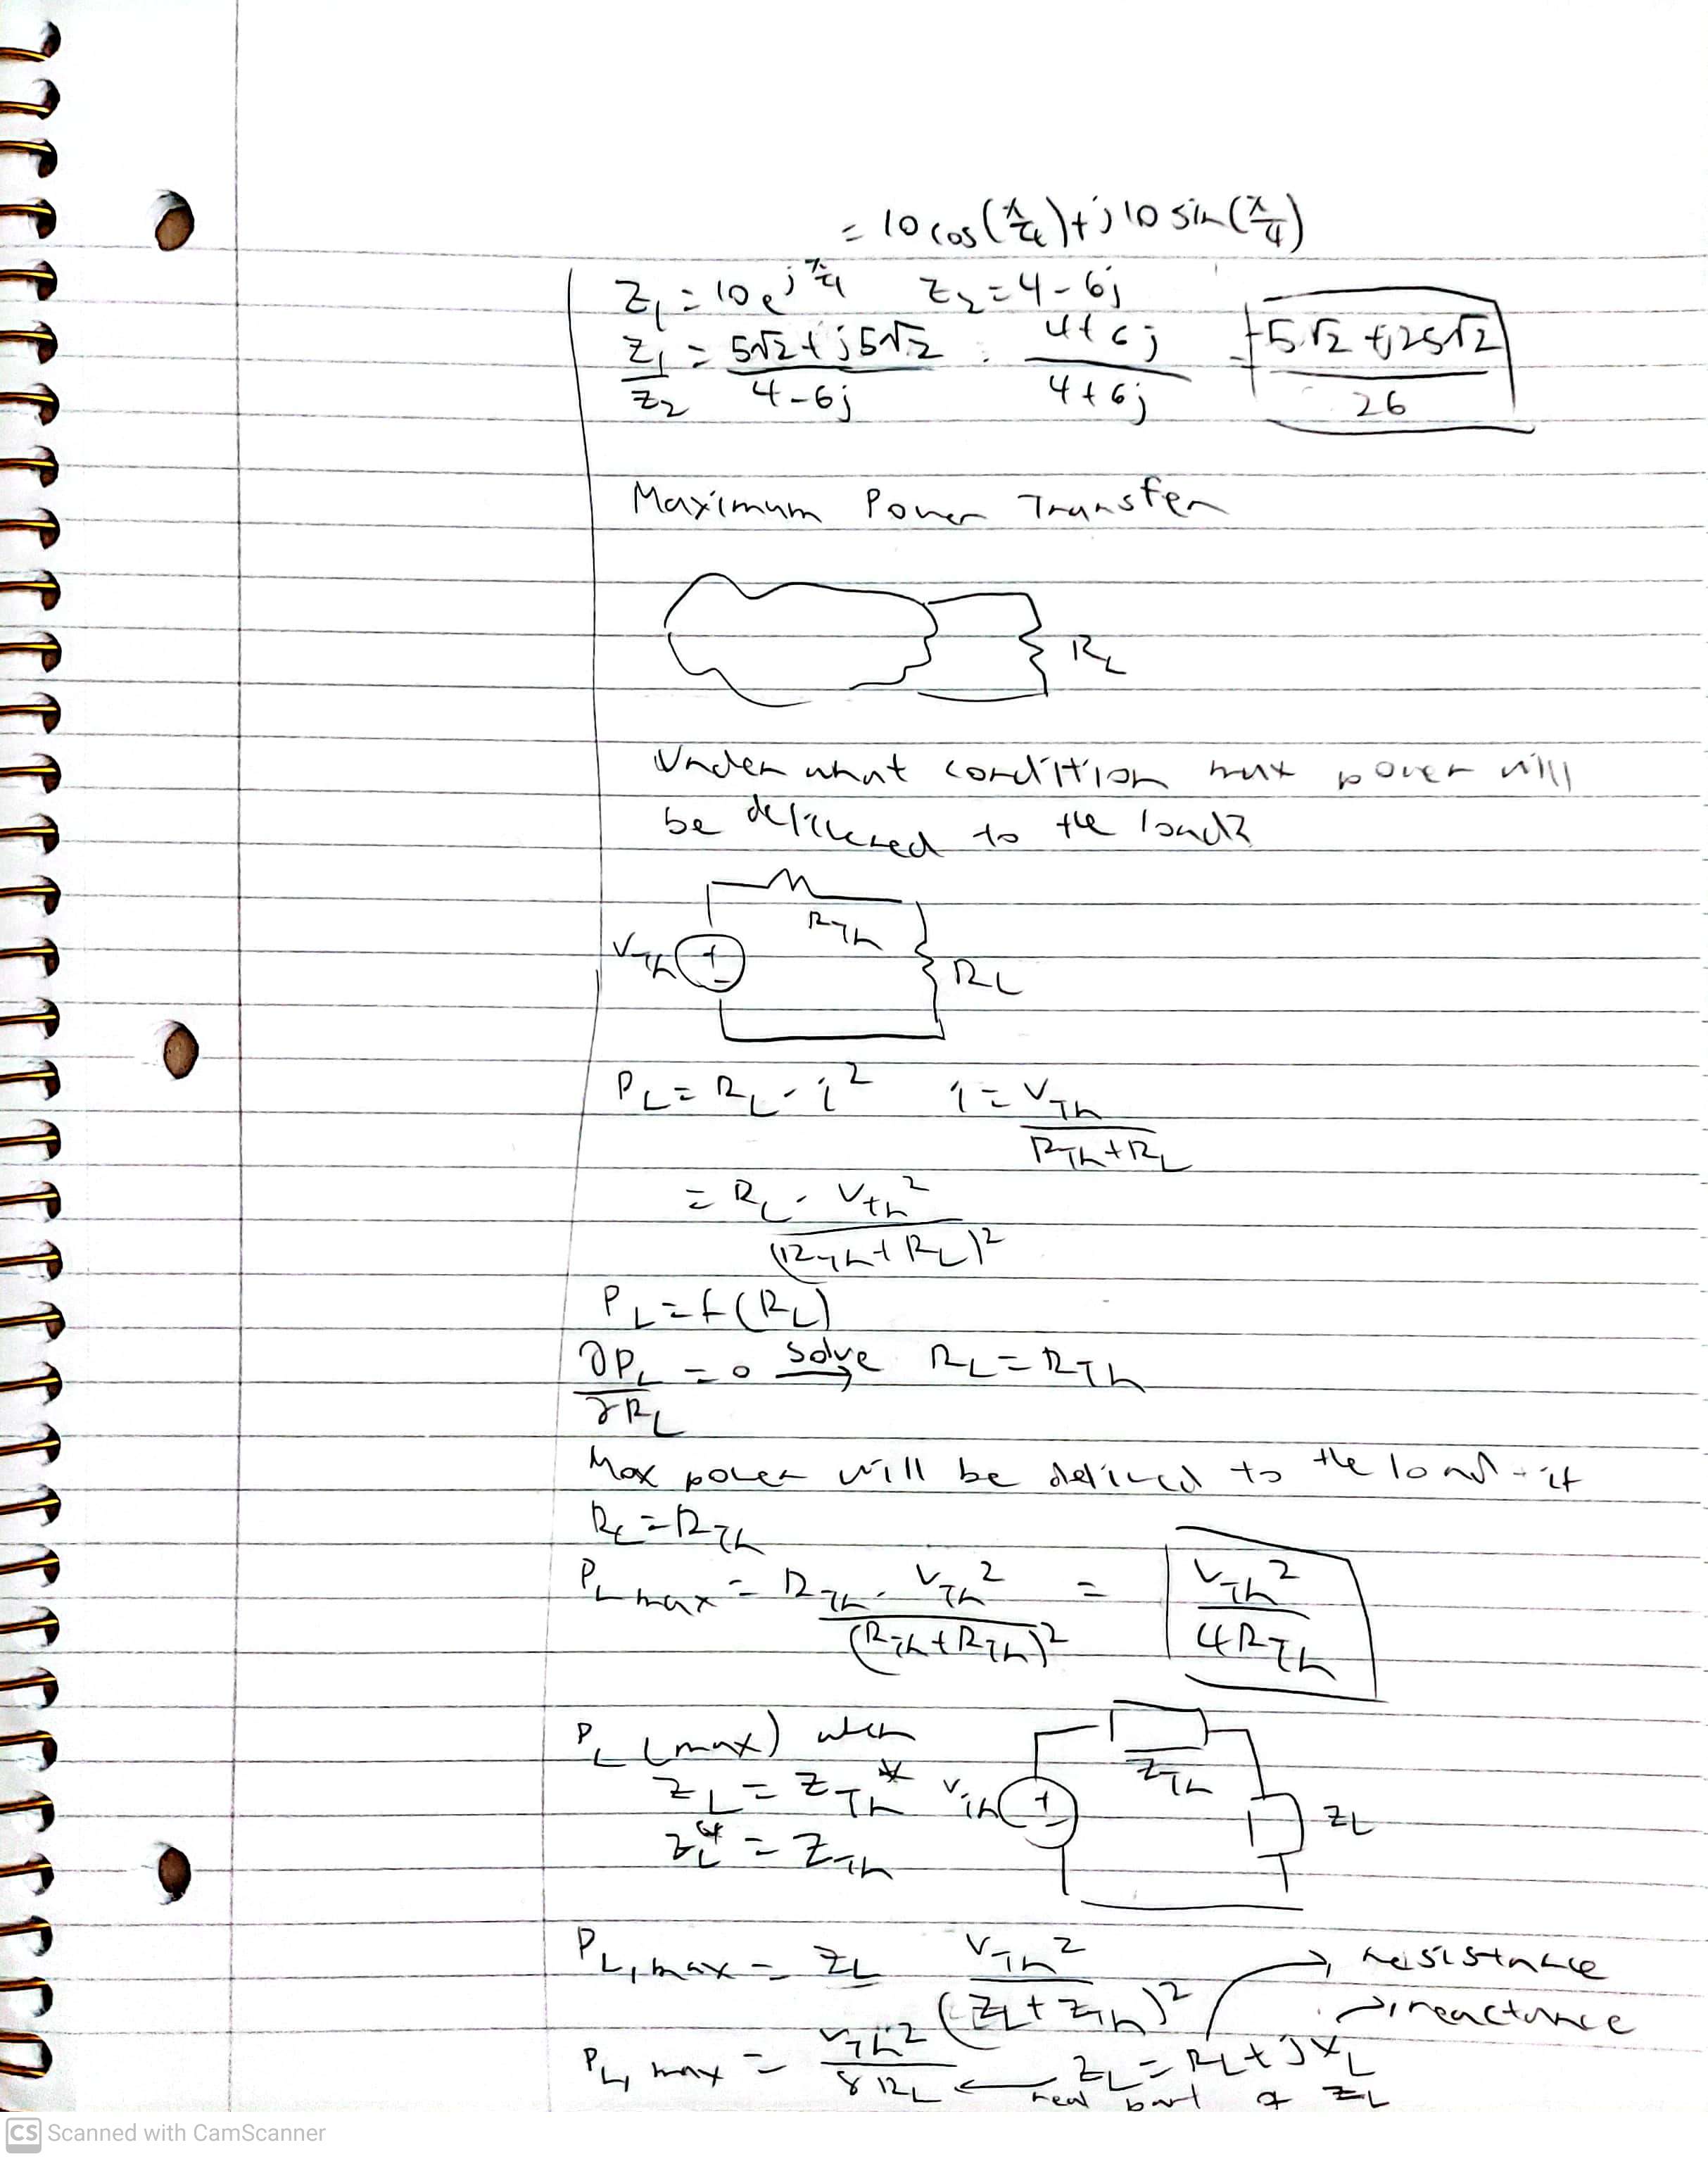 = 10 cos(π/4) + j 10 sin(π/4)
Z₁ = 10 e^(j π/4)   Z₂ = 4 - 6j
Z₁/Z₂ = (5√2 + j5√2)/(4 - 6j) · (4 + 6j)/(4 + 6j) = (-5√2 + j25√2)/26
Maximum Power Transfer
R_L
Under what condition max power will
be delivered to the load?
R_Th
V_Th + - R_L
P_L = R_L · i²   i = V_Th/(R_Th + R_L)
= R_L · V_th²/(R_Th + R_L)²
P_L = f(R_L)
∂P_L/∂R_L = 0 solve → R_L = R_Th
Max power will be delived to the load if
R_L = R_Th
P_L max = R_Th · V_Th²/(R_Th + R_Th)² = V_Th²/(4R_Th)
P_L (max) when
Z_Th
Z_L = Z_Th*   V_Th + - Z_L
Z_L* = Z_Th
P_L,max = Z_L V_Th²/(Z_L + Z_Th)² → resistance
→ reactance
P_L, max = V_Th²/(8 R_L) ← Z_L = R_L + jX_L
real part of Z_L
CS Scanned with CamScanner